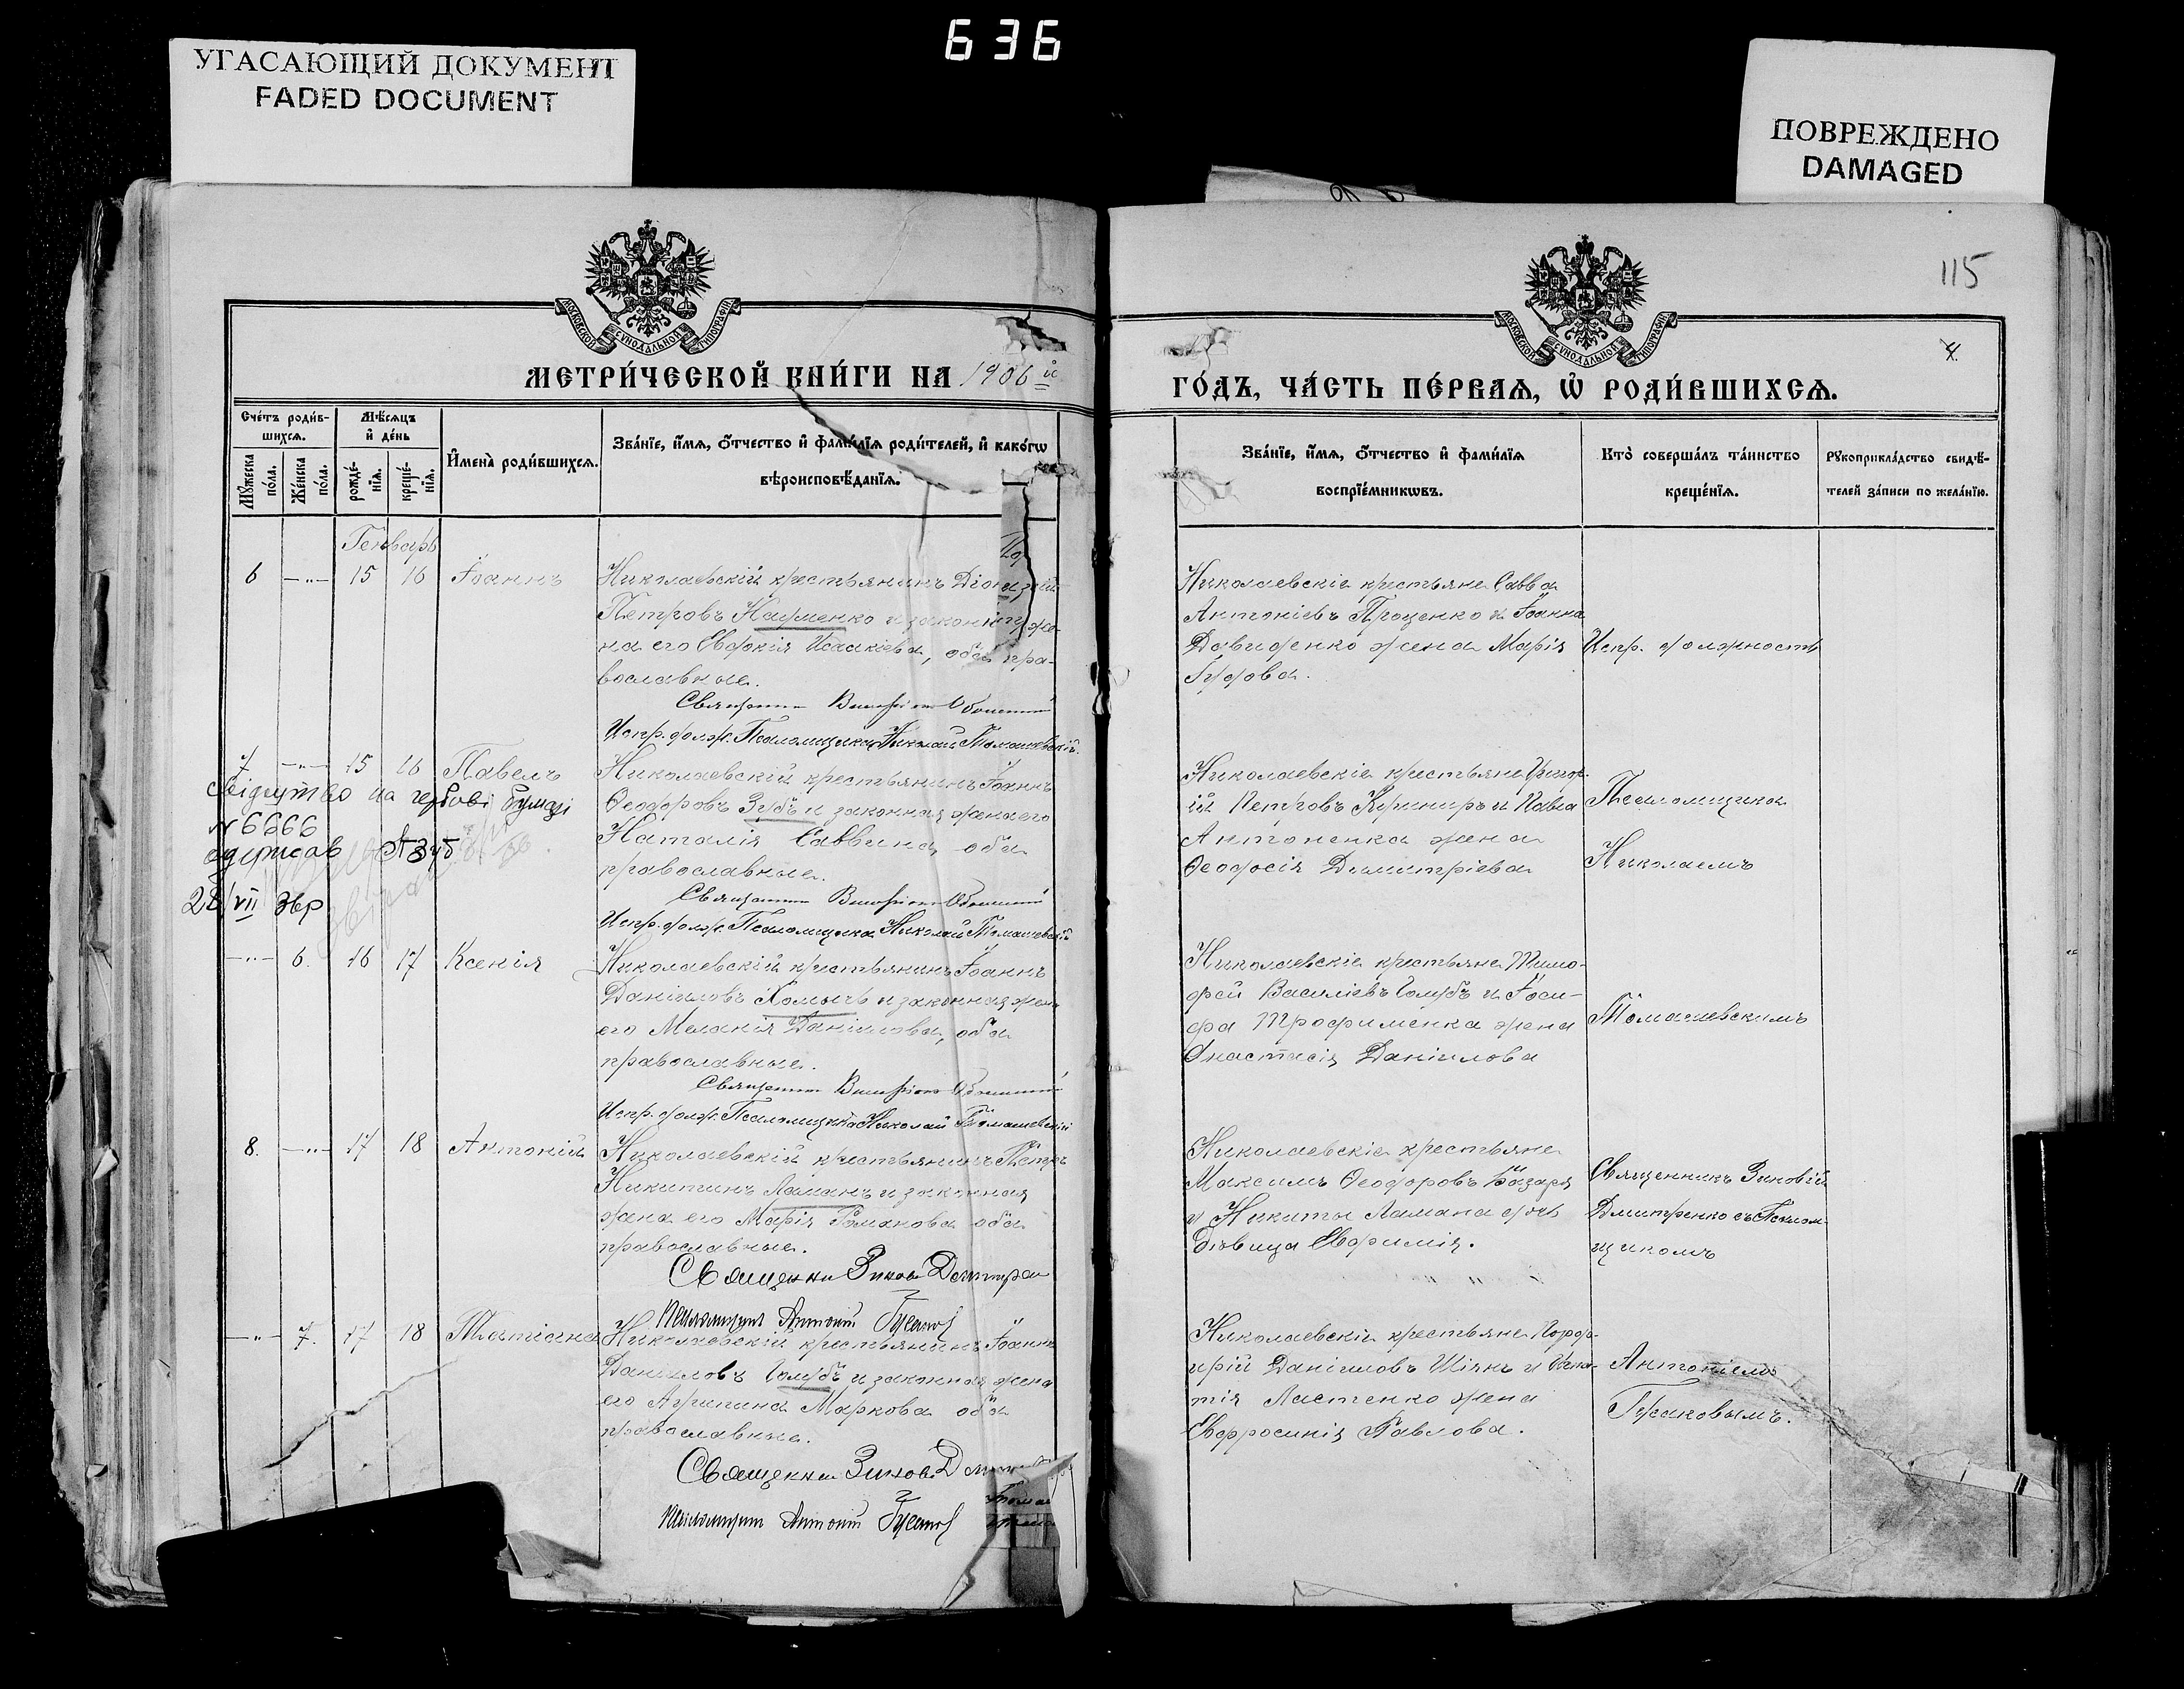 636
УГАСАЮЩИЙ ДОКУМЕНТ
FADED DOCUMENT
ПОВРЕЖДЕНО
DAMAGED
115
4.
МОСКОВСКОЙ СѴНОДАЛЬНОЙ ТИПОГРАФІИ
МОСКОВСКОЙ СѴНОДАЛЬНОЙ ТИПОГРАФІИ
МЕТРИ́ЧЕСКОЙ КНИ́ГИ НА 1906 й
ГО́ДЪ, ЧА́СТЬ ПЕ́РВАѦ, Ѡ҆ РОДИ́ВШИХСѦ.
Сче́тъ роди́в-
шихсѧ.
Мѣ́сѧцъ
и҆ де́нь
Мꙋ́жеска по́ла.
Же́нска по́ла.
рожде́-
нїѧ.
креще́-
нїѧ.
И҆мена̀ роди́вшихсѧ.
Зва́нїе, и҆́мѧ, ѻ҆́тчество и҆ фами́лїѧ роди́телей, и҆ како́гѡ
вѣроисповѣ́данїѧ.
Зва́нїе, и҆́мѧ, ѻ҆́тчество и҆ фами́лїѧ
воспрїе́мникѡвъ.
Кто̀ соверша́лъ та́инство
креще́нїѧ.
Рꙋкоприкла́дство свидѣ́-
телей за́писи по жела́нїю.
Генварь
6 —"— 15 16 Іоаннъ
Николаевскій крестьянинъ Діонизій
Петровъ Науменко и законная же-
на его Евдокія Исаакіева, оба пра-
вославные.
Священник
Испр. долж. Псаломщика Николай Томашевскій.
Николаевскіе крестьяне Савва
Антоніевъ Проценко и Іоанна
Давиденко жена Марія
Испр. должность
7 —"— 15 16 Павелъ
Николаевскій крестьянинъ Іоаннъ
Ѳеодоровъ Зубъ и законная жена его
Наталія Саввина, оба
православные.
Священник
Испр. долж. Псаломщика Николай Томашевскій
на гербові бумазі
N 6666
одержав Зуб
28/VII
Николаевскіе крестьяне Григор-
ій Петровъ и Павла
Антоненка жена
Ѳеодосія Димитріева
Псаломщика
Николаемъ
—"— 6. 16 17 Ксенія
Николаевскій крестьянинъ Іоаннъ
Даніиловъ Хомычъ и законная жена
его Меланія Даніилова, оба
православные.
Священник
Испр. долж. Псаломщика Николай Томашевскій
Николаевскіе крестьяне Тимо-
фей Василіевъ Голубъ и Іоси-
фа Трофименка жена
Анастасія Даніилова
Томашевскимъ
8. —"— 17 18 Антоній
Николаевскій крестьянинъ Петръ
Никитинъ Ламанъ и законная
жена его Марія Романова оба
православные.
Священник Зинов Дмитренко
Псаломщик Антоній Гусаков
Николаевскіе крестьяне
Максимъ Ѳеодоровъ Базаръ
и Никиты Ламана дочь
дѣвица Евфимія.
Священникъ Зиновій
Дмитренко съ Псалом-
щикомъ
—"— 7. 17 18 Татіана
Николаевскій крестьянинъ Іоаннъ
Даніиловъ Голубъ и законная жена
его Агрипина Маркова оба
православные.
Священник Зинов
Псаломщик Антоній Гусаков
Николаевскіе крестьяне Порф-
ирій Даніиловъ Шіянъ и Игна-
тія Ластенко жена
Евфросинія Павлова.
Антоніемъ
Гусаковымъ.